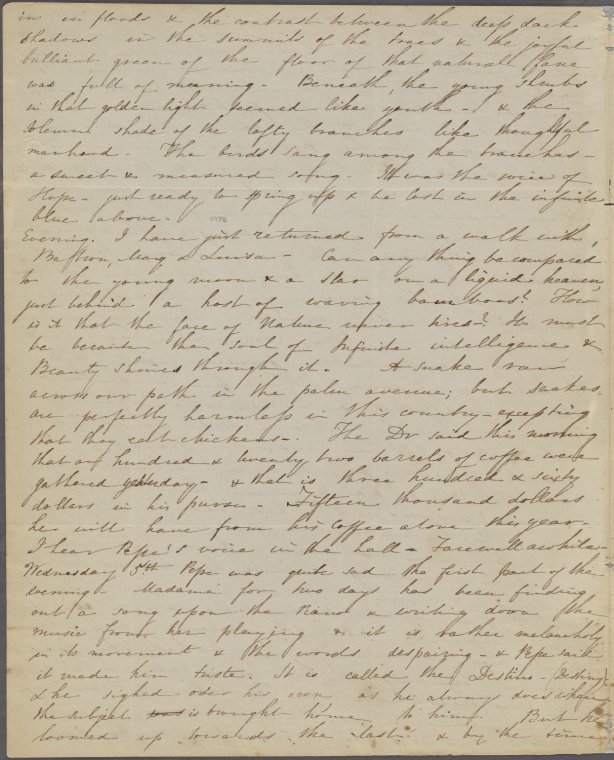 in in floods & the contrast between the deep dark
shadows in the summits of the trees & the joyful
brilliant green of the floor of that natural fane
was full of meaning - Beneath the young shrubs
in that golden light seemed like youth - & the
solemn shade of the lofty branches like thoughtful
manhood - The birds sang among the branches -
a sweet & measured song. It was the voice of
Hope - just ready to spring up & be lost in the infinite
blue above -
NYPL
Evening. I have just returned from a walk with
Mary & Luisa - Can any thing be compared
to the young moon & a star on a liquid heaven
just behind a host of waving bamboos? How
is it that the face of Nature never tires? It must
be because the soul of Infinite intelligence &
Beauty shines through it. A snake ran
across our path in the palm avenue; but snakes
are perfectly harmless in this country - excepting
that they eat chickens -. The Dr said this morning
that an hundred & twenty two barrels of coffee were
gathered yesterday - & that is three hundred & sixty
dollars in his purse - Fifteen thousand dollars
he will have from his coffee alone this year -
I hear Pepe's voice in the hall - Farewell awhile -
Wednesday 5th Pepe was quite sad the first part of the
evening - Madame for two days has been finding
out a song upon the Piano & writing down the
music from her playing & it is rather melancholy
in its movement & the words despairing - & Pepe said
it made him triste. It is called the Destino - (Destiny)
& he sighed over his own as he always does when
the subject is brought home to him. But he
loomed up towards the last & by the time